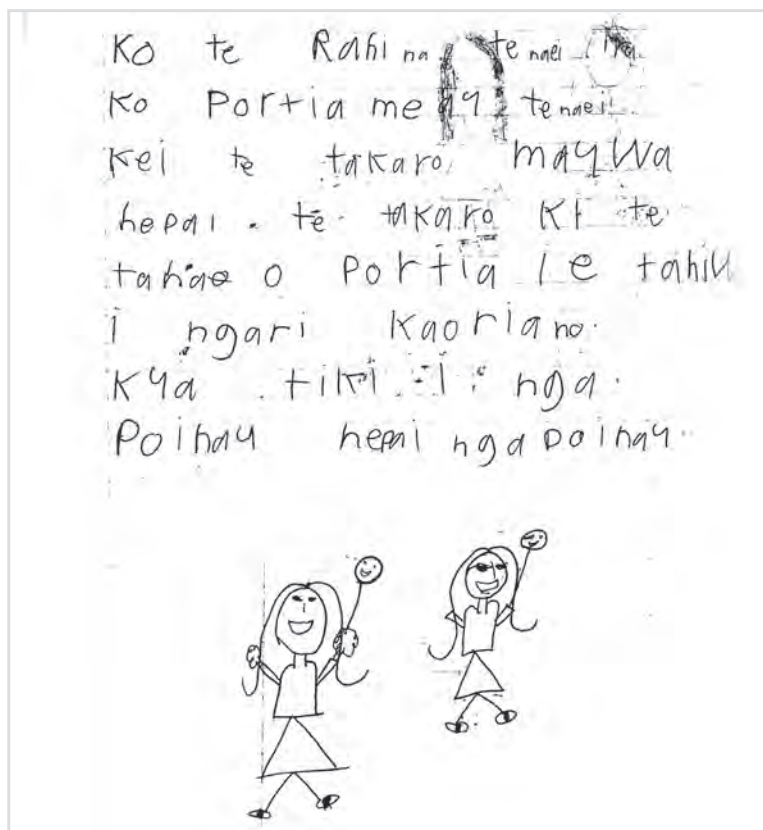 Ko te Rahi na te naei ira
Ko Portia me ay te naei
Kei te takaro maywa
hepai . te takaro Ki te
tahae o Portia te tahiu
i ngari Kaoria no.
Kya tiki i nga.
Poihay hepai nga poihay.